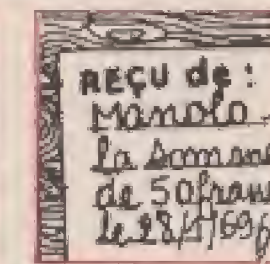 REÇU de :
Manolo
la somme
de 50 francs
le 28/1/69